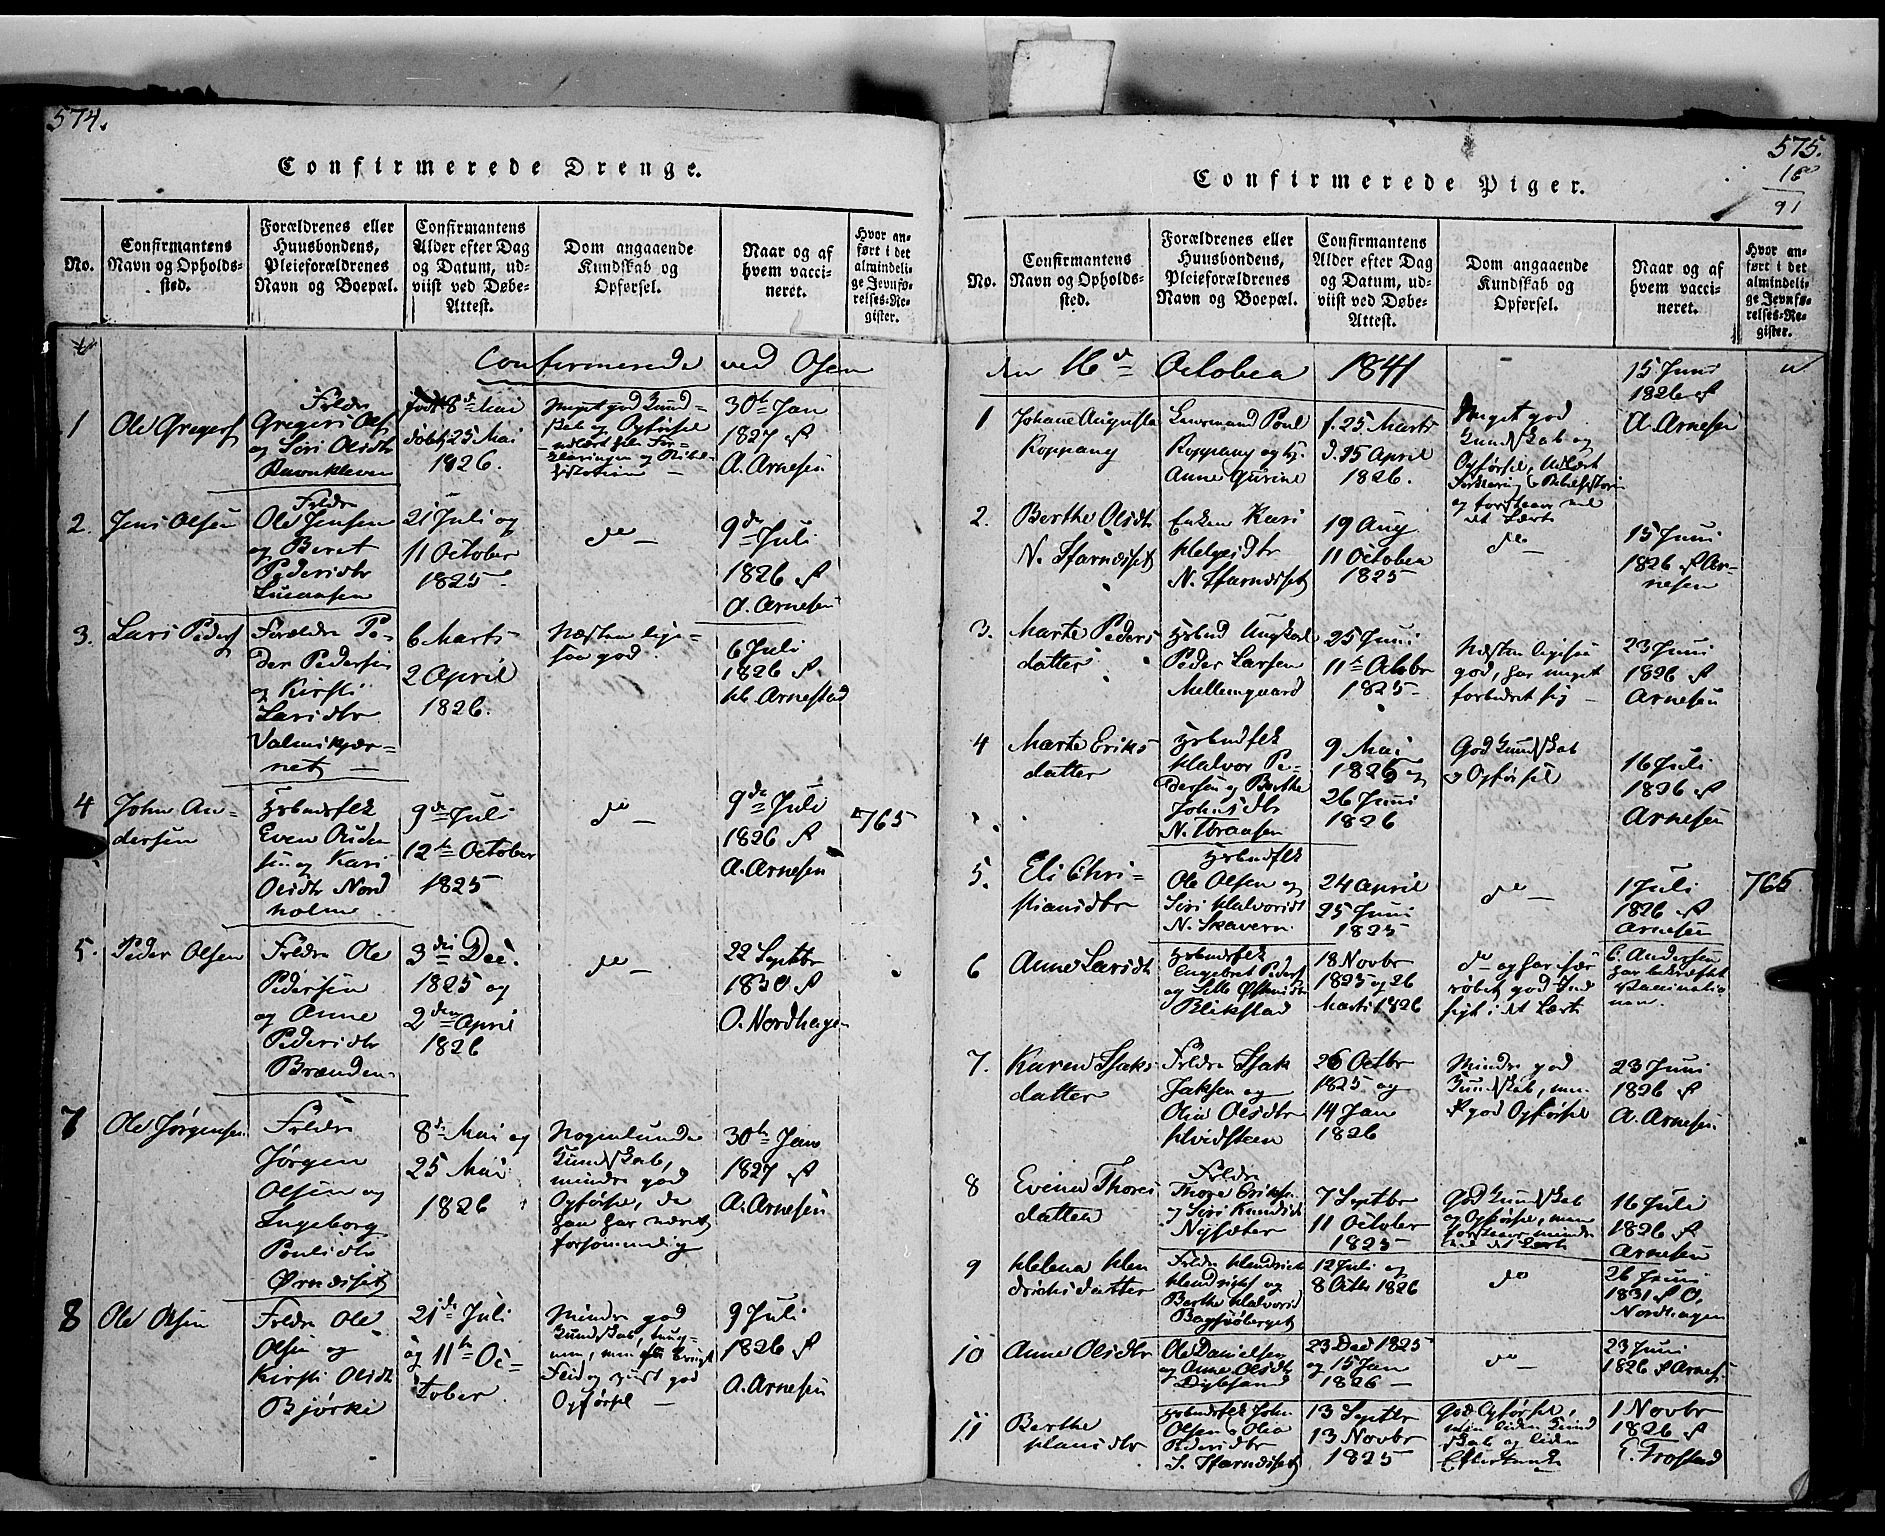 574.
Confirmerede Drenge.
No.
Confirmantens
Navn og Opholds-
sted.
Forældrenes eller
Huusbondens,
Pleieforældrenes
Navn og Boepæl.
Confirmantens
Alder efter Dag
og Datum, ud-
viist ved Døbe-
Attest.
Dom angaaende
Kundskab og
Opførsel.
Naar og af
hvem vacci-
neret.
Hvor an-
ført i det
almindeli-
ge Jevnfø-
relses-Re-
gister.
Confirmerede ved Osen
1
Ole Gregers
Frldre
Gregers Ols
og Siri Olsdtr
Ravnkleven
født 8de Mai
døbt 25 Mai
1826.
Meget god Kund-
skab og Opførsel
udlært hele For-
klaringen og Bibel-
historien
30te Jan
1827 af
A. Arnesen
2.
Jens Olsen
Frldre
Ole Jensen
og Beret
Pedersdtr
21 Juli og
11 October
1825
do
9de Juli
1826 af
A. Arnesen
3.
Lars Peders
Forældre Pe-
der Pedersen
og Kirsti
Larsdtr
Valmskjær-
net
6 Marts
2 April
1826.
Næsten lige-
saa god.
6 Juli
1826 af
H. Arnestad
4
John An-
dersen
Husbondsfolk
Even Ouden
sen og Kari
Olsdtr Nord
holme
9de Juli
12te October
1825
do
9de Juli
1826 af
A. Arnesen
765
5.
Peder Olsen
Frldre Ole
Pedersen
og Anne
Pedersdtr
Brænden
3die Dec.
1825 og
2den April
1826
do
22 Septbr
1830 af
O. Nordhagen
7
Ole Jørgensen
Frldre
Jørgen
Olsen og
Ingeborg
Poulsdtr
Ørnæset
8de Mai og
25 Mai
1826
Nogenlunde
Kundskab,
mindre god
Opførsel, da
han har været
forsømmelig
30te Jan
1827 af
A. Arnesen
8
Ole Olsen
Frldre Ole
Olsen og
Kirsti Olsdtr
Bjørke
21de Juli
og 11te Oc-
tober
Mindre god
Kundskab,
Flid og god
Opførsel
9 Juli
1826 af
A. Arnesen
575.
91
Confirmerede Piger.
No.
Confirmantens
Navn og Opholds-
sted.
Forældrenes eller
Huusbondens,
Pleieforældrenes
Navn og Boepæl.
Confirmantens
Alder efter Dag
og Datum, ud-
viist ved Døbe-
Attest.
Dom angaaende
Kundskab og
Opførsel.
Naar og af
hvem vacci-
neret.
Hvor an-
ført i det
almindeli-
ge Jevnfø-
relses-Re-
gister.
den 16de October 1841
1
Johane Augusta
Koppang
Lensmand Poul
Koppang og h.
Anne Gurine
f. 25 Marts
d. 15 April
1826.
Meget god
Kundskab og
Opførsel, udlært
Forklaring & Bibelhistorie
og forstaaer vel
det Lærte
15 Juni
1826 af
A. Arnesen
2.
Berthe Olsdtr
Enken Kari
Helgesdtr
19 Aug
11 October
1825
do
15 Juni
1826 af Ar-
nesen
3.
Marte Peders
datter
Ungkarl
Peder Larsen
Mellemgaard
25 Juni
11te Octobr
1825
Næsten ligesaa
god, har meget
forbedret sig
23 Juni
1826 af
Arnesen
4
Marte Eriks
datter
Husbondsfolk
Halvor Pe-
dersen og Berthe
Johnsdtr
N. Thraasen
9 Mai
1826 og
26 Juni
1826
God Kundskab
& Opførsel
16 Juli
1826 af
Arnesen
5.
Eli Chri-
stiansdtr
Husbondsfolk
Ole Olsen og
Siri Halvorsdt
N. Skavern
24 April
25 Juni
1825
do
1 Juli
1826 af
Arnesen
765.
6
Anne Larsdtr
Husbondsfolk
Engebret Peders
Blikstad
18 Novbr
1825 og 26
Marts 1826
do og har især
røbet god Ind
sigt i det Lærte
C. Andersen
har bekræftet
Vaccinatio
nen.
7.
Karen Isaks
datter
Frldre Isak
Isaksen og
Olia Olsdtr
Hvidsteen
26 Octbr
1825 og
14 Jan
1826
Mindre god
Kundskab, men
god Opførsel
23 Juni
1826 af
A. Arnesen
8
Evena Thores
datter
Frldre
Thore Eriksen
og Siri Knudsdt
Nysæter
7 Septbr
11 October
1825
God Kundskab
og Opførsel, men
forstaaer mindre
vel det Lærte
16 Juli
1826 af
Arnesen
9
Helena Hen
drichsdatter
Frldre Hendrick
Hendrichs og
Berthe Halvorsd
12 Juli og
8 Octbr 1826
do
26 Juni
1831 af O.
Nordhagen
10
Anne Olsdtr
Ole Danielsen
og Anne Olsdtr
23 Dec 1825
og 15 Jan
1826
do
23 Juni
1826 af Arnes
11
Berthe
Hansdtr
Husbondsfolk John
Olsen & Olia
Pedersdtr
13 Septbr
13 Novbr
1825
God Opførsel,
men liden Kund
skab og liden
Eftertanke
1 Novbr
1826 af
E. Trostad